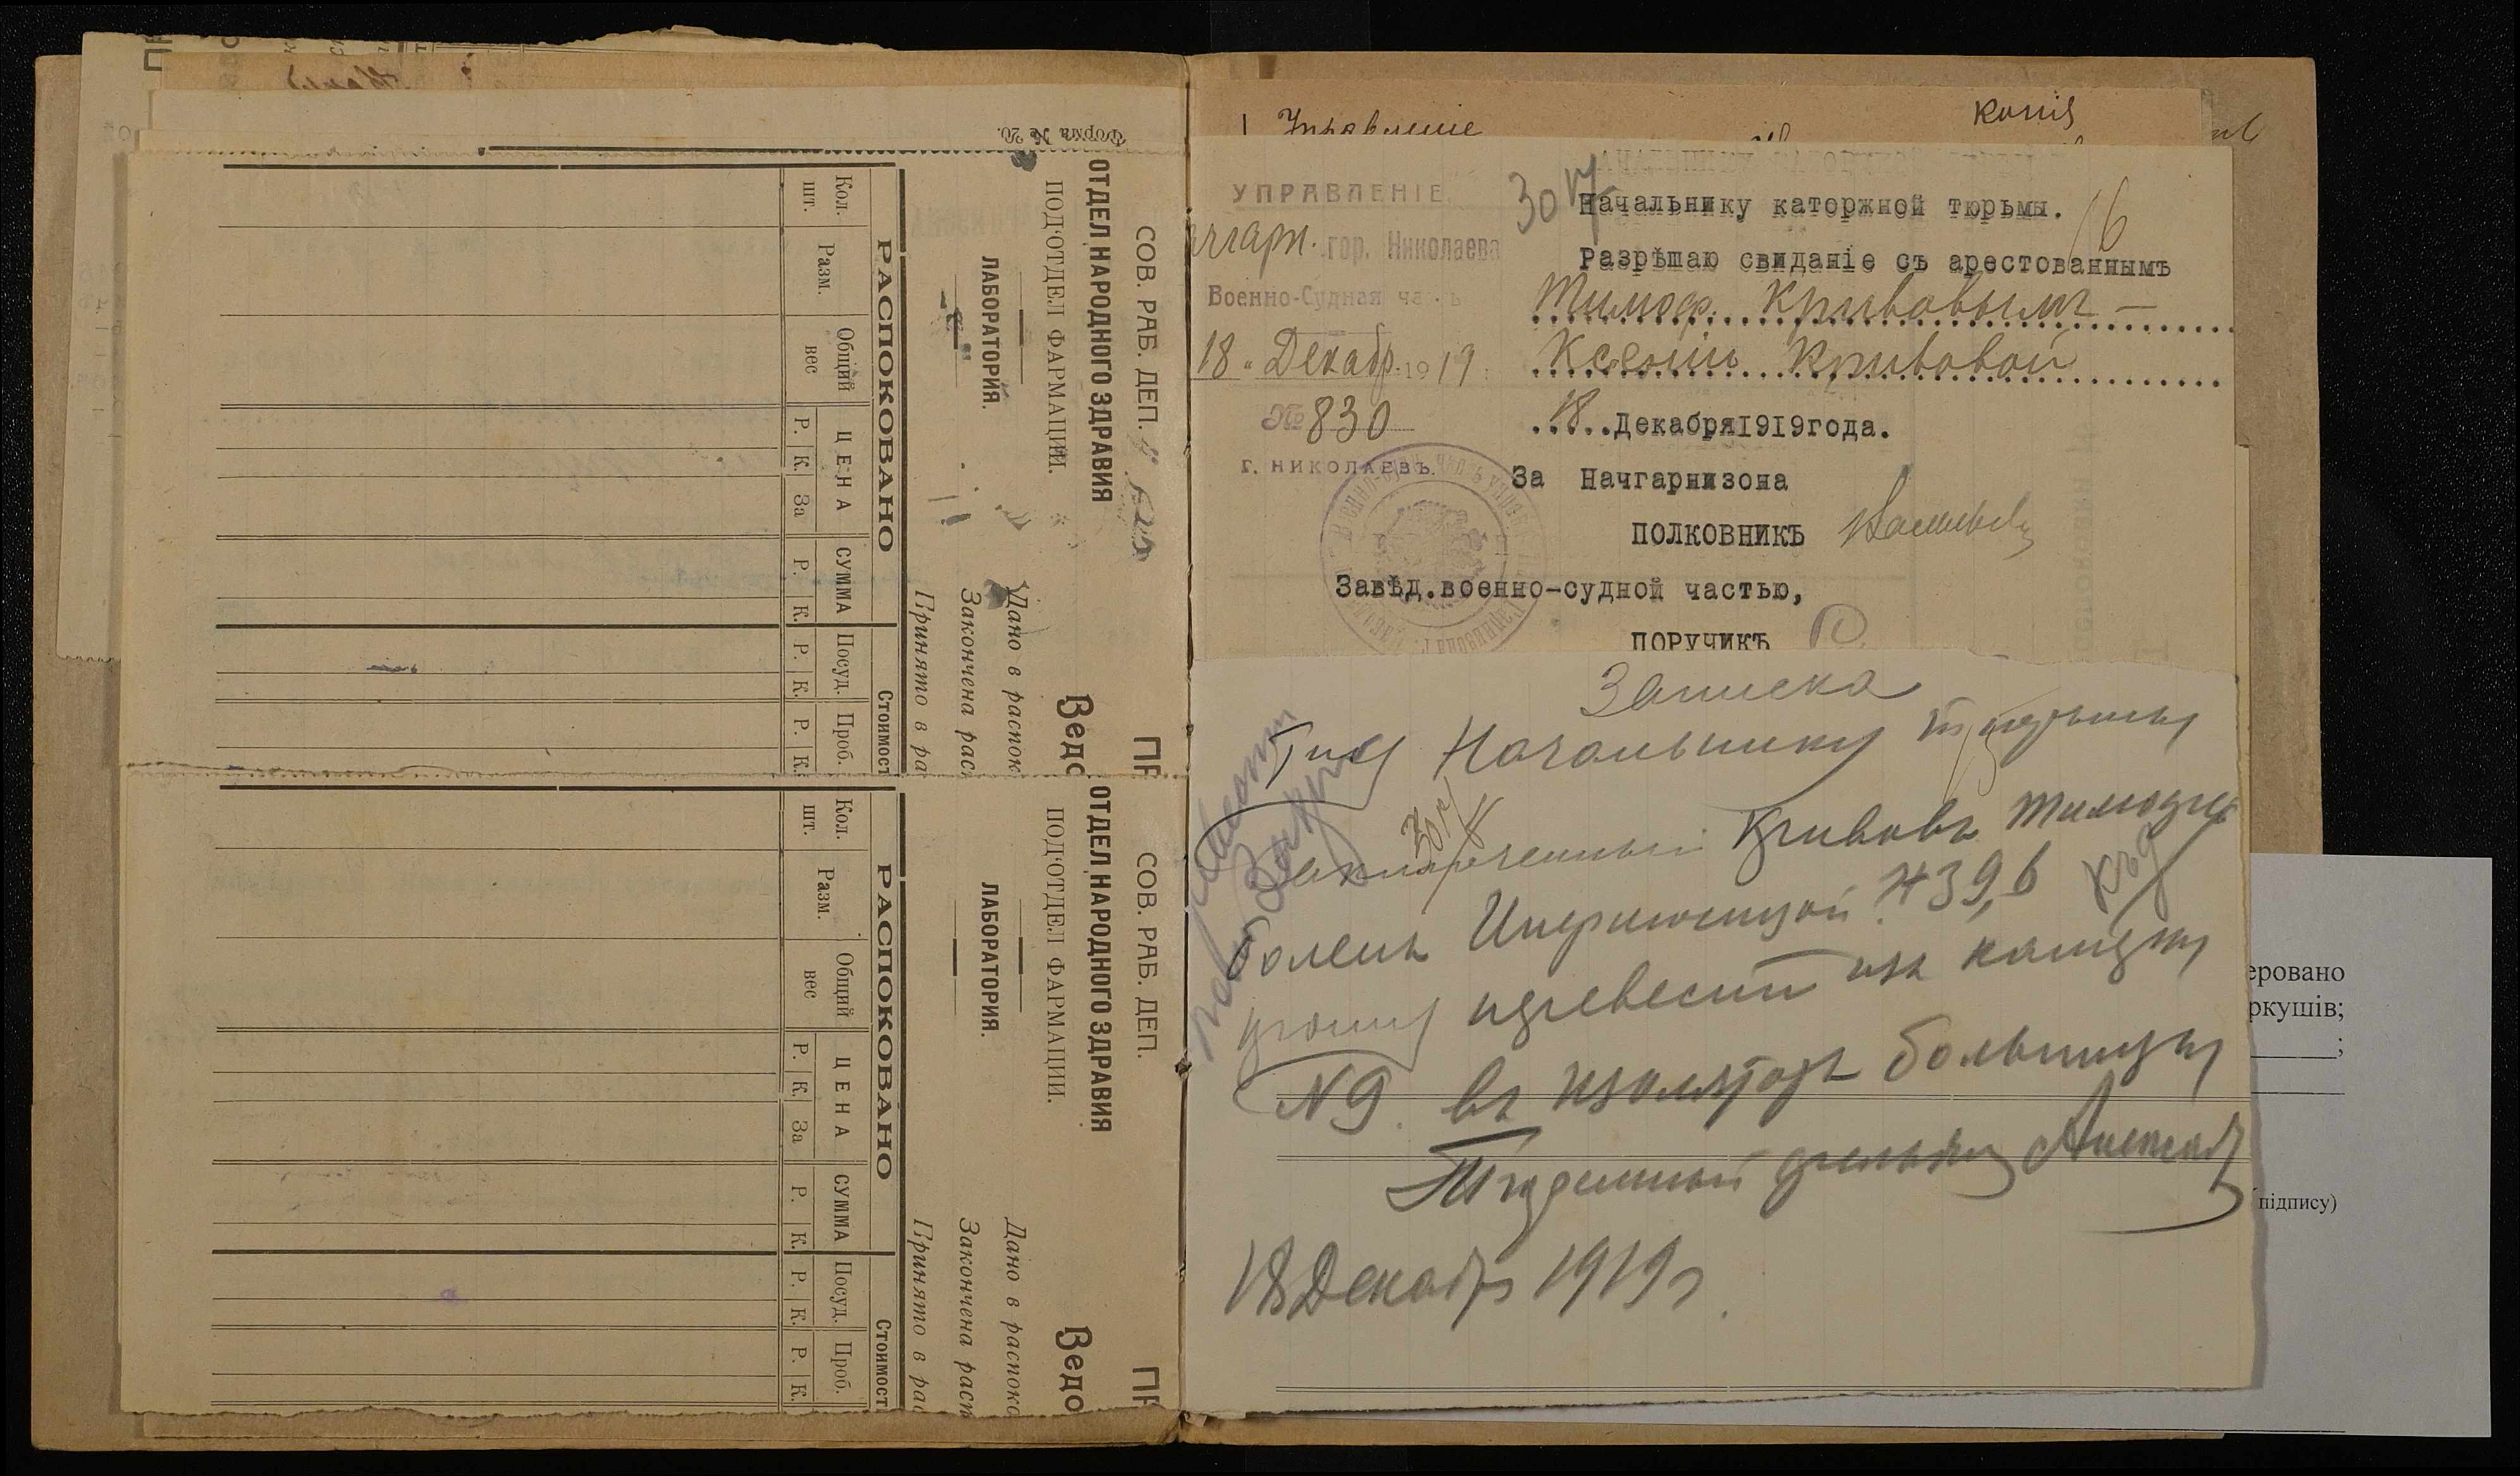 Форма № 20.
СОВ. РАБ. ДЕП.
ОТДЕЛ НАРОДНОГО ЗДРАВИЯ
ПОД'ОТДЕЛ ФАРМАЦИИ.
ЛАБОРАТОРИЯ.
ПР
Ведо
Дано в распок
Закончена рас
Принято в ра
РАСПОКОВАНО
Стоимост
Кол. шт.
Разм.
Общий вес
ЦЕНА
СУММА
Посуд.
Проб.
Р. К. За Р. К. Р. К. Р. К.
СОВ. РАБ. ДЕП.
ОТДЕЛ НАРОДНОГО ЗДРАВИЯ
ПОД'ОТДЕЛ ФАРМАЦИИ.
ЛАБОРАТОРИЯ.
ПР
Ведо
Дано в распоко
Закончена расп
Принято в рас
РАСПОКОВАНО
Стоимост
Кол. шт.
Разм.
Общий вес
ЦЕНА
СУММА
Посуд.
Проб.
Р. К. За Р. К. Р. К. Р. К.
Управление
Копия
УПРАВЛЕНІЕ
гор. Николаева
Военно-Судная часть
18 " Декабр 1919
№ 830
г. НИКОЛАЕВЪ.
16
Начальнику каторжной тюрьмы.
Разрѣшаю свиданіе съ арестованнымъ
Тимоф. Кривовымъ —
Ксеніи Кривовой
18 Декабря 1919 года.
За Начгарнизона
ПОЛКОВНИКЪ
Завѣд. военно-судной частью,
ПОРУЧИКЪ
Записка
Начальнику тюрьмы
Заключенный Кривовъ Тимофей
боленъ Инфлюэнцой. t 39,6
прошу перевести изъ камеры
N 9. въ изоляторъ больницы
Тюремный фельдш
18 Декабря 1919 г.
еровано
ркушів;
;
підпису)